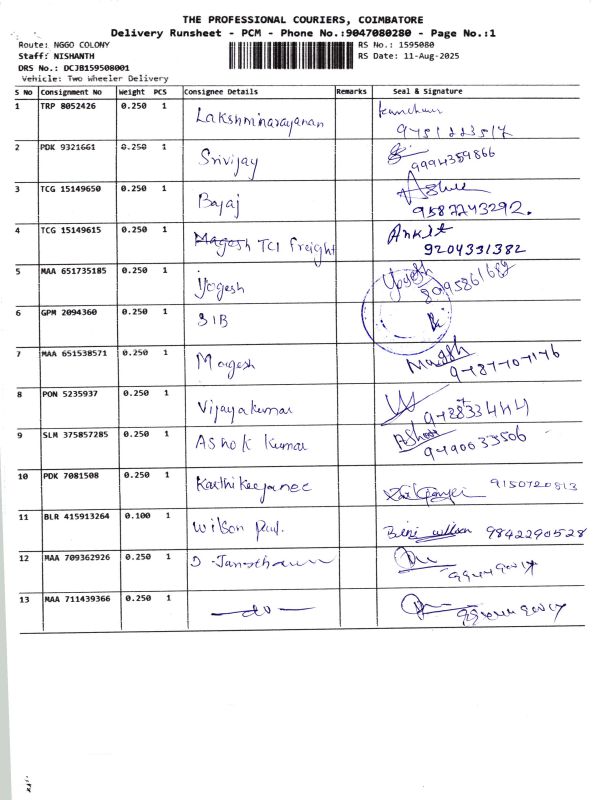 THE PROFESSIONAL COURIERS, COIMBATORE
Delivery Runsheet - PCM - Phone No.:9047080280 - Page No.:1
Route: NGGO COLONY RS No.: 1595080
Staff: NISHANTH RS Date: 11-Aug-2025
DRS No.: DCJB159508001
Vehicle: Two Wheeler Delivery
S No Consignment No Weight PCS Consignee Details Remarks Seal & Signature
1 TRP 8052426 0.250 1 Lakshminarayanan
2 PDK 9321661 0.250 1 Srivijay 9994359866
3 TCG 15149650 0.250 1 Bajaj
9587743292.
4 TCG 15149615 0.250 1 Magesh TCI freight Ankit
9204331382
5 MAA 651735185 0.250 1 Yogesh Yogesh
6 GPM 2094360 0.250 1 SIB
7 MAA 651538571 0.250 1 Magesh Magesh
8 PON 5235937 0.250 1 Vijayakumar
9 SLM 375857285 0.250 1 Ashok Kumar Ashok
10 PDK 7081508 0.250 1 9150720813
11 BLR 415913264 0.100 1 Wilson Paul. 9842290528
12 MAA 709362926 0.250 1
13 MAA 711439366 0.250 1 — do —